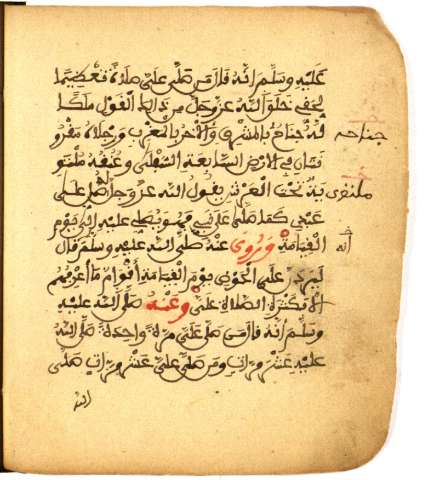 عليه وسلم انه قال من صلى علي صلاة تعظيما
لحقي خلق الله عز وجل من ذلك القول ملكا
له جناح بالمشرق والآخر بالمغرب ورجلاه مقرو
جناحه
رتان في الارض السابعة السفلى وعنقه ملتو
ية تحت العرش يقول الله عز وجل صل على
ملتوى
عبدي كما صلى على نبيي فهو يصلي عليه إلى يوم
القيامة وروي عنه صلى الله عليه وسلم قال
أنه
ليردن علي الحوض يوم القيامة أقوام ما أعرفهم
إلا بكثرة الصلاة علي وعنه صلى الله عليه
وسلم أنه قال من صلى علي مرة واحدة صلى الله
عليه عشر مرات ومن صلى علي عشر مرات صلى
الله